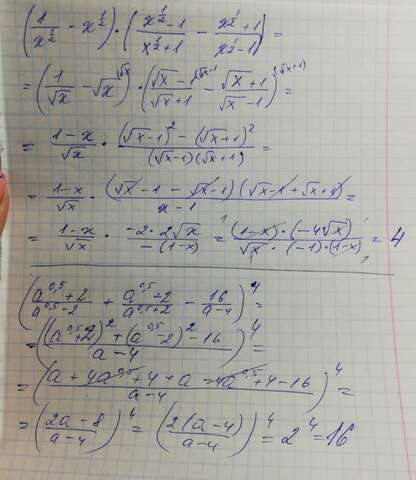 (1/x^(1/2) - x^(1/2)) · ((x^(1/2)-1)/(x^(1/2)+1) - (x^(1/2)+1)/(x^(1/2)-1)) =
= (1/√x - √x^(√x)) · ((√x-1^(√x-1))/(√x+1) - (√x+1)/(√x-1)^(√x+1)) =
= (1-x)/√x · ((√x-1)² - (√x+1)²)/((√x-1)(√x+1)) =
= (1-x)/√x · ((√x-1-√x-1)(√x-1+√x+1))/(x-1) =
= (1-x)/√x · (-2·2√x)/(-(1-x)) = ((1-x)·(-4√x))/(√x·(-1)·(1-x)) = 4
((a^0,5+2)/(a^0,5-2) + (a^0,5-2)/(a^0,5+2) - 16/(a-4))^4 =
= (((a^0,5+2)² + (a^0,5-2)² - 16)/(a-4))^4 =
= ((a+4a^0,5+4+a-4a^0,5+4-16)/(a-4))^4 =
= ((2a-8)/(a-4))^4 = ((2(a-4))/(a-4))^4 = 2^4 = 16